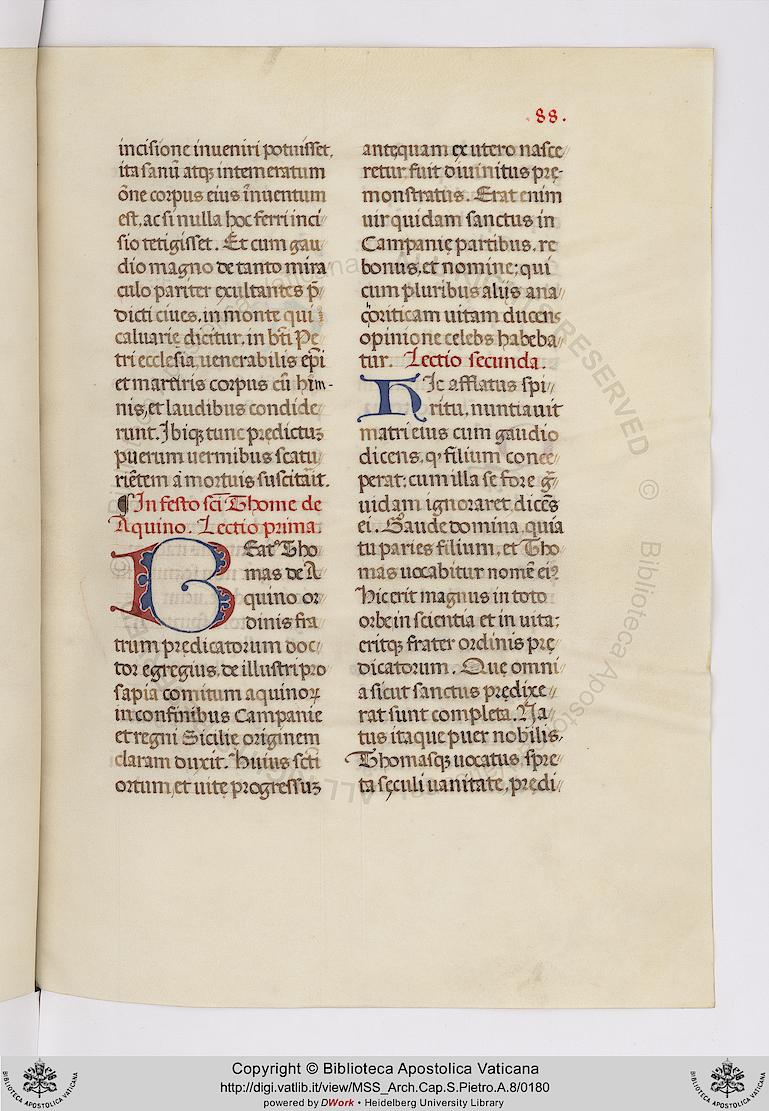 88.
incisione inueniri potuisset,
ita sanū atq; intemeratum
ōne corpus eius inuentum
est, ac si nulla hoc ferri inci
sio tetigisset. Et cum gau
dio magno de tanto mira
culo pariter exultantes p̄
dicti ciues, in monte qui
caluarię dicitur, in bt̄i Pe
tri ecclesia, uenerabilis ep̄i
et martiris corpus cū him-
nis, et laudibus condide
runt. Ibiq; tunc predictuʒ
puerum uermibus scatu
riētem a mortuis suscitauit.
¶ In festo sc̄i Thome de
Aquino. Lectio prima.
Beatꝰ Tho
mas de A
quino or
dinis fra
trum predicatorum doc
tor egregius, de illustri pro
sapia comitum aquinoꝝ
in confinibus Campanie
et regni Sicilię originem
claram duxit. Huius sc̄ti
ortum, et uite progressuʒ
antequam ex utero nasce
retur, fuit diuinitus pre
monstratus. Erat enim
uir quidam sanctus in
Campanię partibus, re
bonus, et nomine; qui
cum pluribus alijs ana
coriticam uitam ducens
opinione celebs habeba
tur. Lectio secunda.
Hic afflatus spi
ritu, nuntiauit
matri eius cum gaudio
dicens, q' filium conce
perat; cum illa se fore g̃
uidam ignoraret, dicēs
ei. Gaude domina, quia
tu paries filium, et Tho
mas uocabitur nomē eiꝰ
Hic erit magnus in toto
orbe in scientia et in uita;
eritq; frater ordinis prę
dicatorum. Quę omni
a sicut sanctus predixe
rat sunt completa. Na
tus itaque puer nobilis,
Thomasq; uocatus, spre
ta sęculi uanitate, predi
Copyright © Biblioteca Apostolica Vaticana
http://digi.vatlib.it/view/MSS_Arch.Cap.S.Pietro.A.8/0180
powered by DWork • Heidelberg University Library
BIBLIOTECA APOSTOLICA VATICANA
BIBLIOTECA APOSTOLICA VATICANA